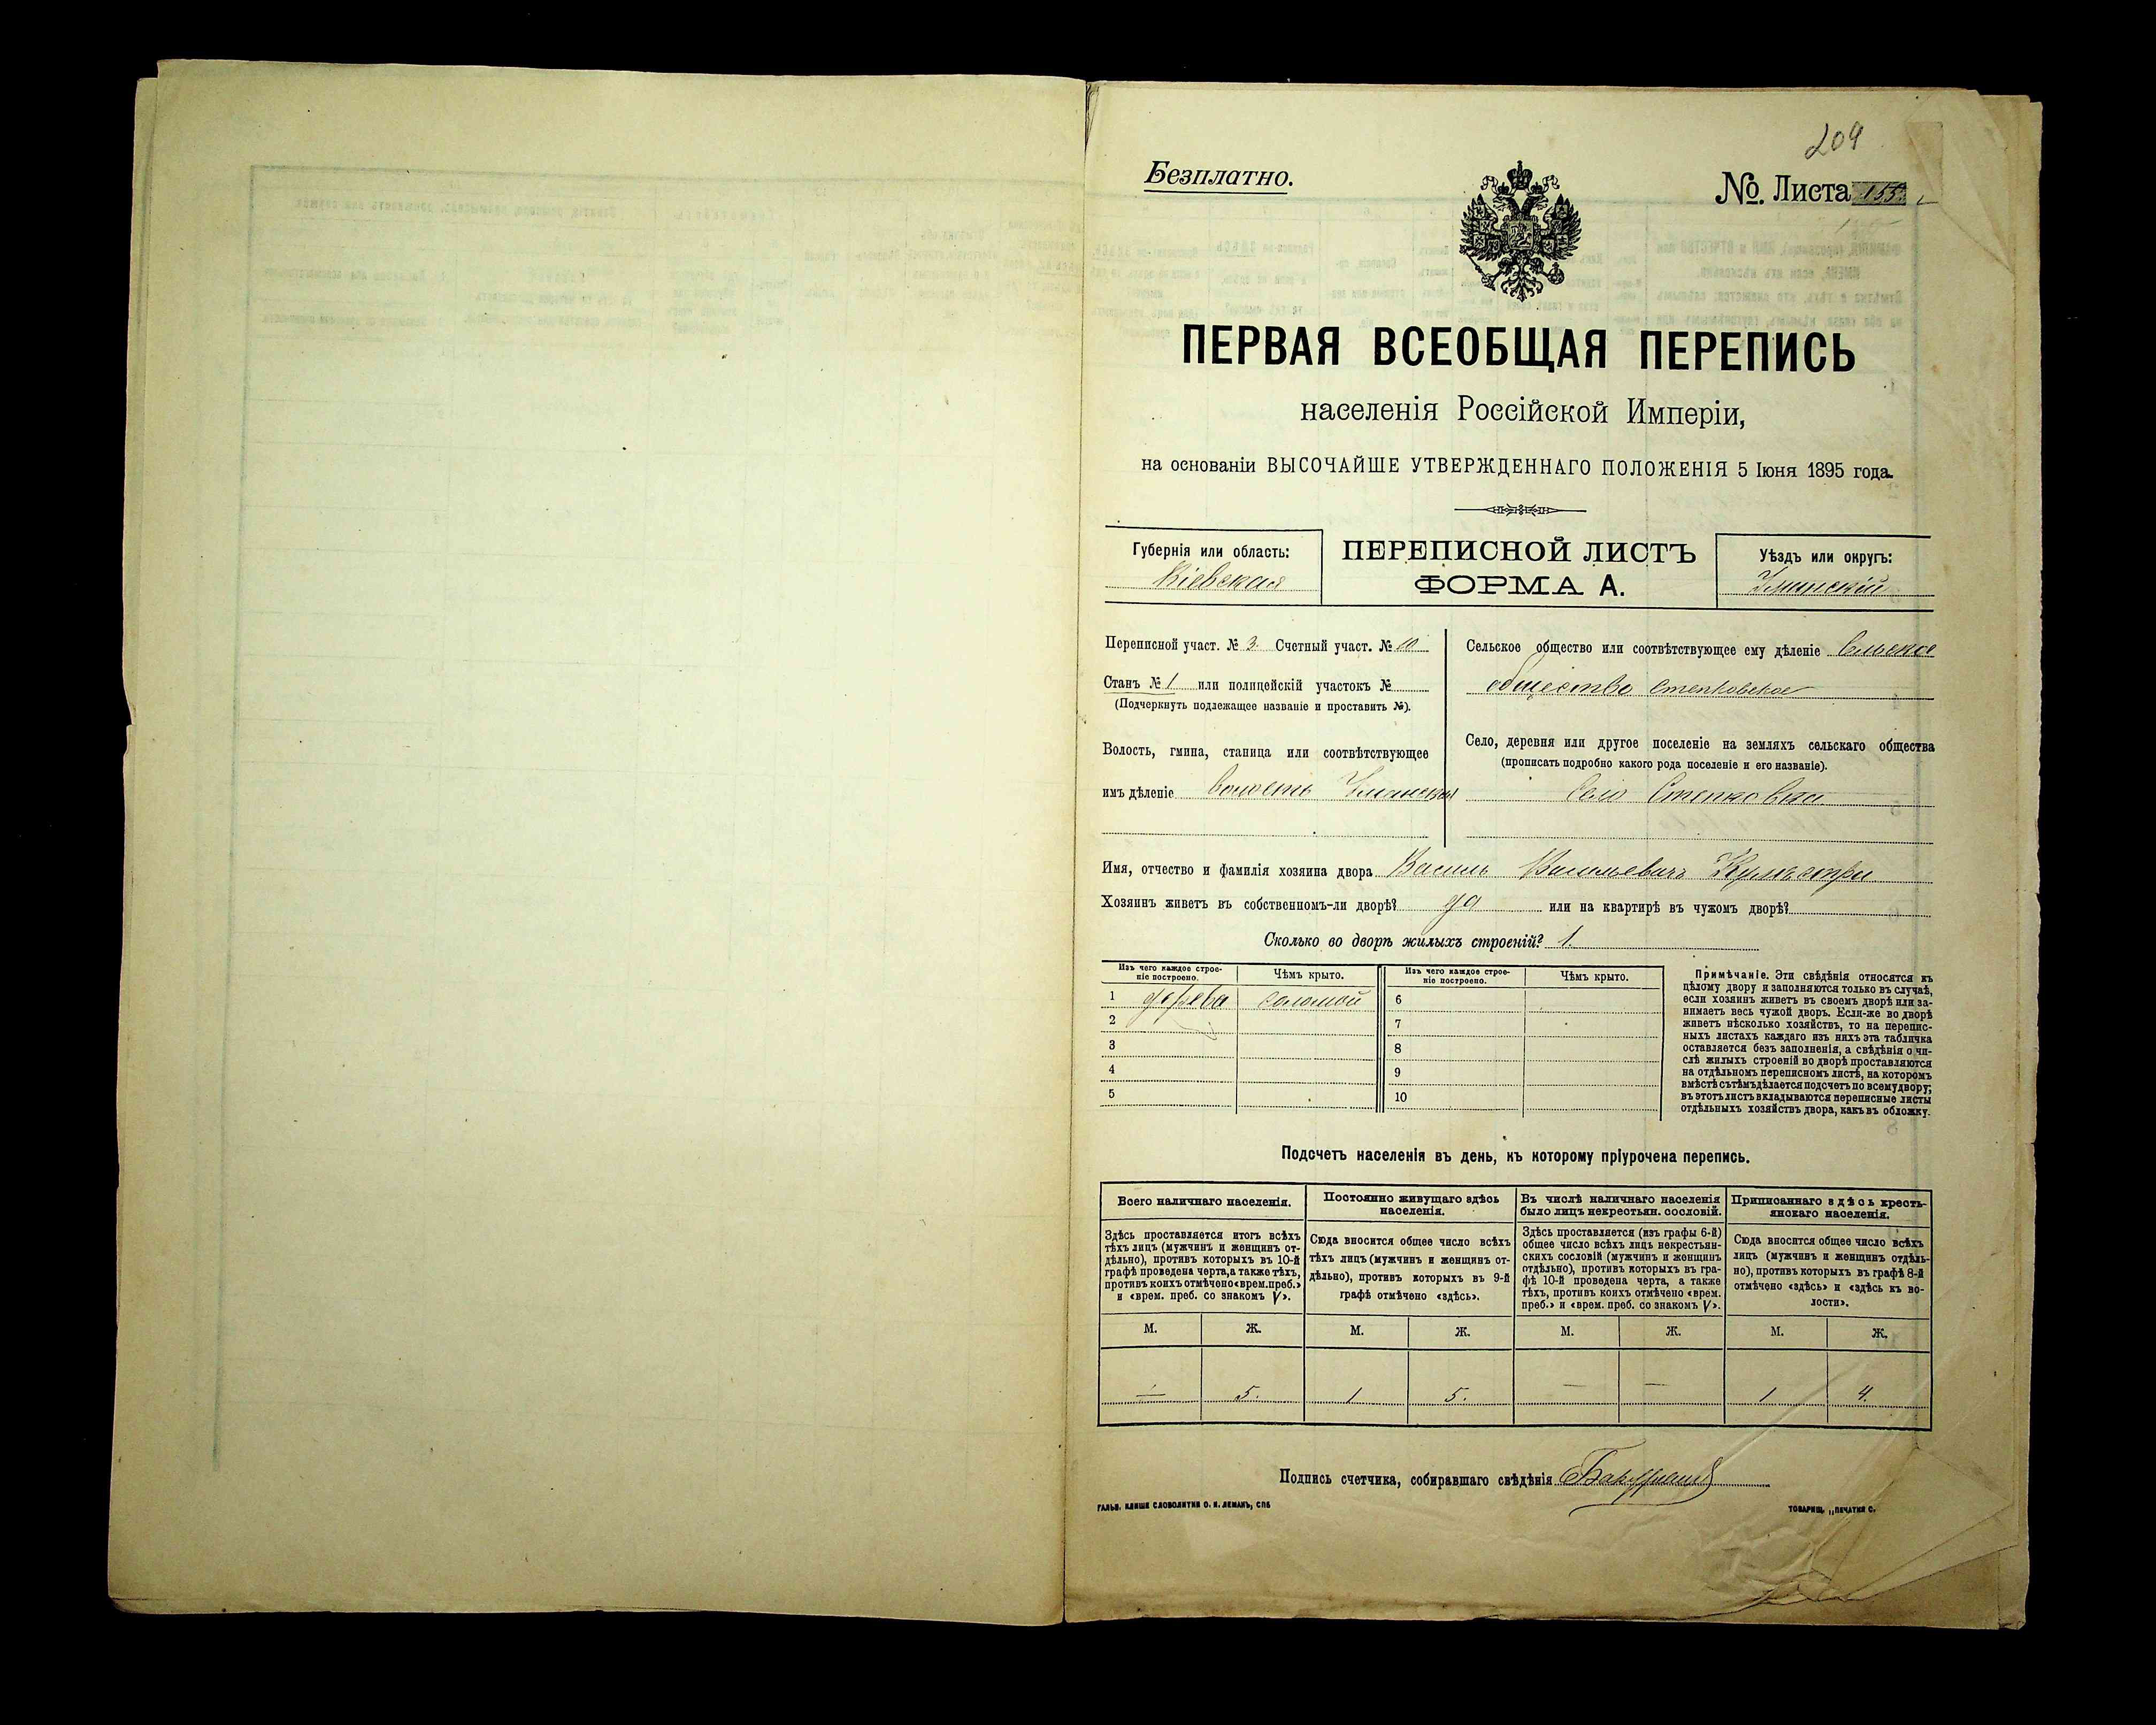 209
Безплатно.
№. Листа 155
ПЕРВАЯ ВСЕОБЩАЯ ПЕРЕПИСЬ
населенія Россійской Имперіи,
на основаніи ВЫСОЧАЙШЕ УТВЕРЖДЕННАГО ПОЛОЖЕНІЯ 5 Іюня 1895 года.
Губернія или область:
Кіевская
ПЕРЕПИСНОЙ ЛИСТЪ
ФОРМА А.
Уѣздъ или округъ:
Уманскій
Переписной участ. № 3. Счетный участ. № 10
Станъ № 1 или полицейскій участокъ №
(Подчеркнуть подлежащее названіе и проставить №).
Волость, гмина, станица или соотвѣтствующее
имъ дѣленіе волость Уманская
Сельское общество или соотвѣтствующее ему дѣленіе Сельское
общество Степковское
Село, деревня или другое поселеніе на земляхъ сельскаго общества
(прописать подробно какого рода поселеніе и его названіе).
Село Степковка
Имя, отчество и фамилія хозяина двора Василь Васильевичъ
Хозяинъ живетъ въ собственномъ-ли дворѣ? да или на квартирѣ въ чужомъ дворѣ?
Сколько во дворѣ жилыхъ строеній? 1.
Изъ чего каждое строе-
ніе построено.
Чѣмъ крыто.
Изъ чего каждое строе-
ніе построено.
Чѣмъ крыто.
1 дерева соломой 6
2 7
3 8
4 9
5 10
Примѣчаніе. Эти свѣдѣнія относятся къ
цѣлому двору и заполняются только въ случаѣ,
если хозяинъ живетъ въ своемъ дворѣ или за-
нимаетъ весь чужой дворъ. Если-же во дворѣ
живетъ нѣсколько хозяйствъ, то на перепис-
ныхъ листахъ каждаго изъ нихъ эта табличка
оставляется безъ заполненія, а свѣдѣнія о чи-
слѣ жилыхъ строеній во дворѣ проставляются
на отдѣльномъ переписномъ листѣ, на которомъ
вмѣстѣ съ тѣмъ дѣлается подсчетъ по всему двору;
въ этотъ листъ вкладываются переписные листы
отдѣльныхъ хозяйствъ двора, какъ въ обложку.
Подсчетъ населенія въ день, къ которому пріурочена перепись.
Всего наличнаго населенія.
Здѣсь проставляется итогъ всѣхъ
тѣхъ лицъ (мужчинъ и женщинъ от-
дѣльно), противъ которыхъ въ 10-й
графѣ проведена черта, а также тѣхъ,
противъ коихъ отмѣчено «врем. преб.»
и «врем. преб. со знакомъ V».
Постоянно живущаго здѣсь
населенія.
Сюда вносится общее число всѣхъ
тѣхъ лицъ (мужчинъ и женщинъ от-
дѣльно), противъ которыхъ въ 9-й
графѣ отмѣчено «здѣсь».
Въ числѣ наличнаго населенія
было лицъ некрестьян. сословій.
Здѣсь проставляется (изъ графы 6-й)
общее число всѣхъ лицъ некрестьян-
скихъ сословій (мужчинъ и женщинъ
отдѣльно), противъ которыхъ въ гра-
фѣ 10-й проведена черта, а также
тѣхъ, противъ коихъ отмѣчено «врем.
преб.» и «врем. преб. со знакомъ V».
Приписаннаго здѣсь кресть-
янскаго населенія.
Сюда вносится общее число всѣхъ
лицъ (мужчинъ и женщинъ отдѣль-
но), противъ которыхъ въ графѣ 8-й
отмѣчено «здѣсь» и «здѣсь къ во-
лости».
М. Ж. М. Ж. М. Ж. М. Ж.
— 5. 1 5. — — 1 4.
Подпись счетчика, собиравшаго свѣдѣнія
ГАЛЬВ. КЛИШЕ СЛОВОЛИТНИ О. И. ЛЕМАНЪ, СПБ
ТОВАРИЩ. „ПЕЧАТНЯ С.